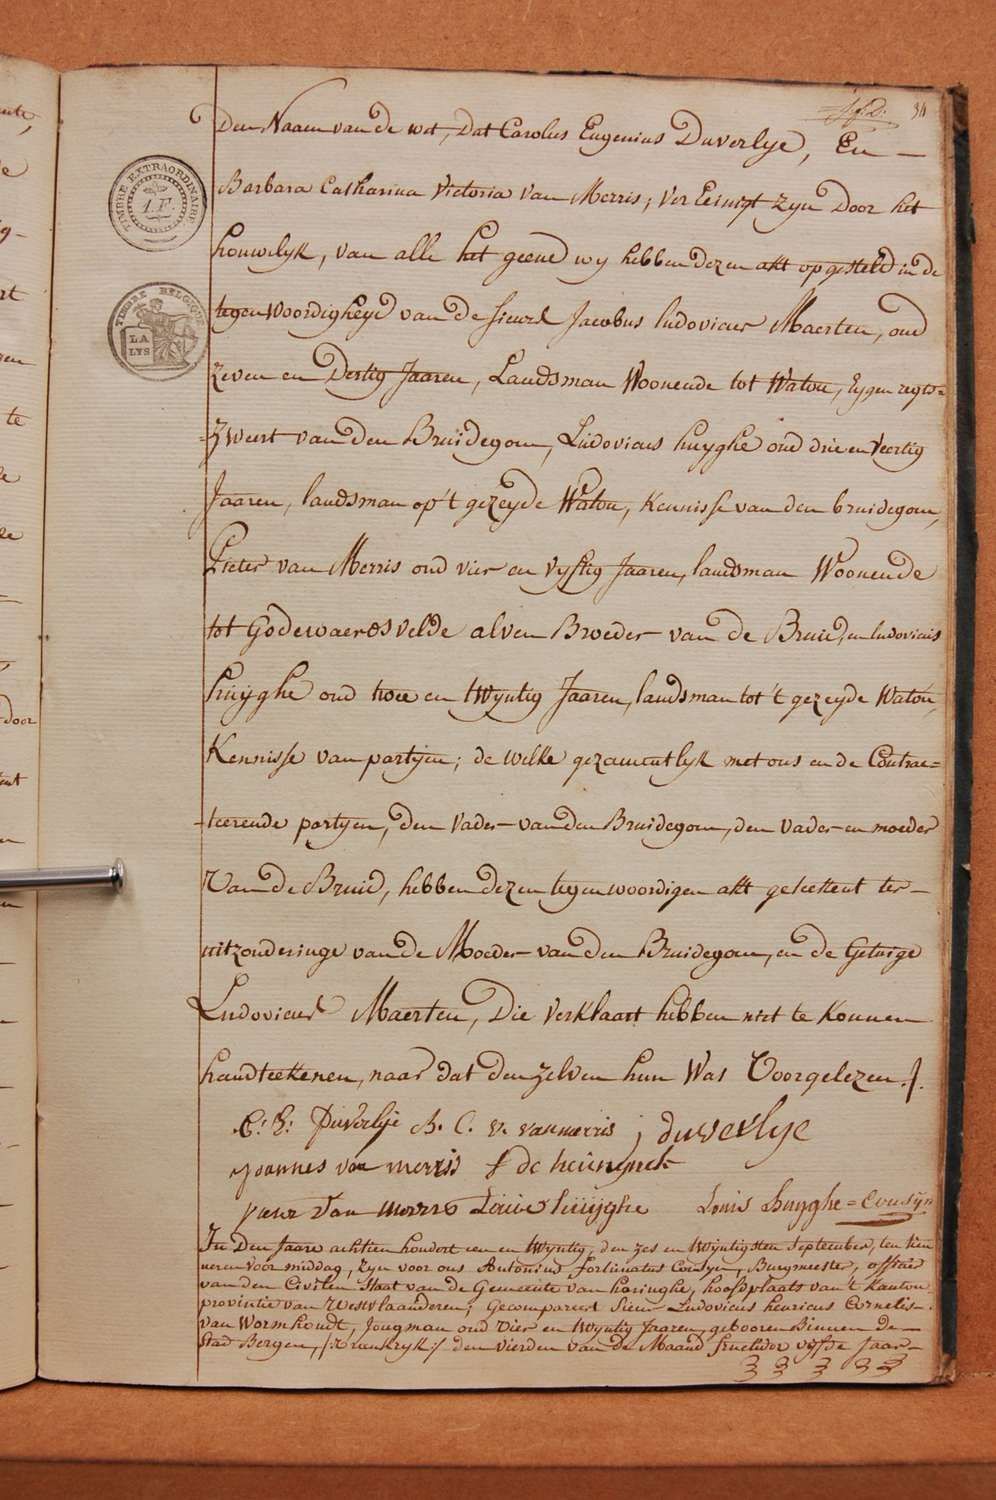 34
Den Naam van de wet, Dat Carolus Eugenius Duverlije, En
Barbara Catharina Victoria van Merris; vereenigt zijn Door het
houwelijk, van alle het geene wij hebben dezen akt opgesteld in de
tegenwoordigheyd van de sieurs Jacobus Ludovicus Maerten, oud
zeven en Dertig Jaaren, Landsman Woonende tot Watou, Eygen regts-
-Zweert van den Bruidegom, Ludovicus huyghe oud drie en Veertig
Jaaren, landsman op't gezeyde Watou, Kennisse van den bruidegom,
Pieter van Merris oud vier en vyftig Jaaren, landsman Woonende
tot Godewaersvelde alven Broeder van de Bruid, en ludovicus
huijghe oud twee en twyntig Jaaren, landsman tot 't gezeyde Watou,
Kennisse van partijen; de welke gezamentlijk met ons en de Contrac-
-teerende partijen, den Vader van den Bruidegom, den vader en moeder
Van de Bruid, hebben dezen tegenwoordigen akt geteekent ter
uitzonderinge van de Moeder van den Bruidegom, en de Getuige
Ludovicus Maerten, Die verklaart hebben niet te Konnen
handteekenen, naar dat den zelven hun Was Voorgelezen ./.
C: E: Duverlije B. C. v. vanmerris ; duverlye
Joannes van merris de heunynck
van merris Louis huijghe Louis Huyghe = Cousyn
In Den Jaare achtien hondert een en twyntig, den zes en twyntigsten September, ten tien
ueren voor middag, zyn voor ons Antonius fortunatus Cousyn, Burgmeester, officier
van den Civilen Staat van de Gemeente van haringhe, hoofdplaats van 't kanton
provintie van Westvlaanderen; Gecompareert Sieur Ludovicus henricus Cornelis
van Wormhoudt, Jongman oud vier en twyntig Jaaren, gebooren Binnen de
Stad Bergen, /:vrankryk:/ den vierden van de Maand fructidor vyfde Jaar
TIMBRE EXTRAORDINAIRE
1.F.
TIMBRE BELGIQUE
LA
LYS